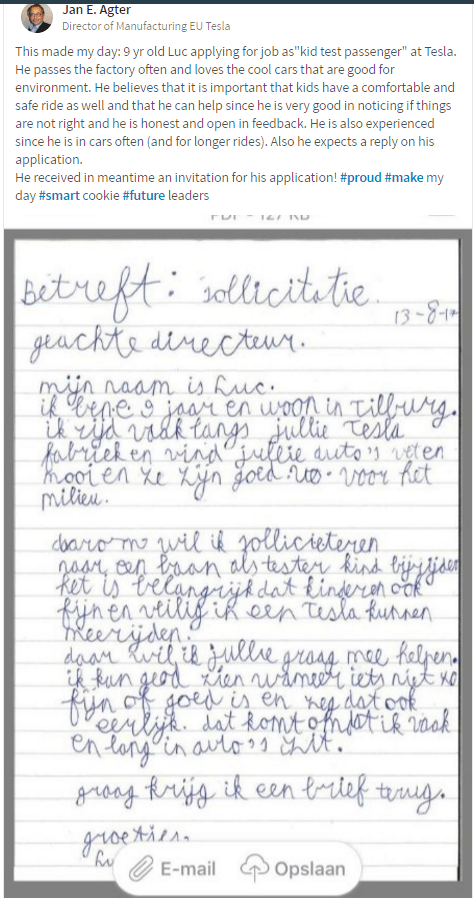 Jan E. Agter
Director of Manufacturing EU Tesla
This made my day: 9 yr old Luc applying for job as"kid test passenger" at Tesla.
He passes the factory often and loves the cool cars that are good for
environment. He believes that it is important that kids have a comfortable and
safe ride as well and that he can help since he is very good in noticing if things
are not right and he is honest and open in feedback. He is also experienced
since he is in cars often (and for longer rides). Also he expects a reply on his
application.
He received in meantime an invitation for his application! #proud #make my
day #smart cookie #future leaders
Betreft: sollicitatie.
13-8-17
geachte directeur.
mijn naam is Luc.
ik ben 9 jaar en woon in Tilburg.
ik rijd vaak langs jullie Tesla
fabriek en vind jullie auto's
mooi en ze zijn goed voor het
milieu.
daarom wil ik sollicieteren
naar een baan als tester kind bijrijder
het is belangrijk dat kinderen ook
fijn en veilig in een Tesla kunnen
meerijden.
daar wil ik jullie graag mee helpen.
ik kan goed zien wanneer iets niet zo
fijn of goed is en zeg dat ook
eerlijk. dat komt omdat ik vaak
en lang in auto's zit.
graag krijg ik een brief terug.
groetjes.
E-mail
Opslaan